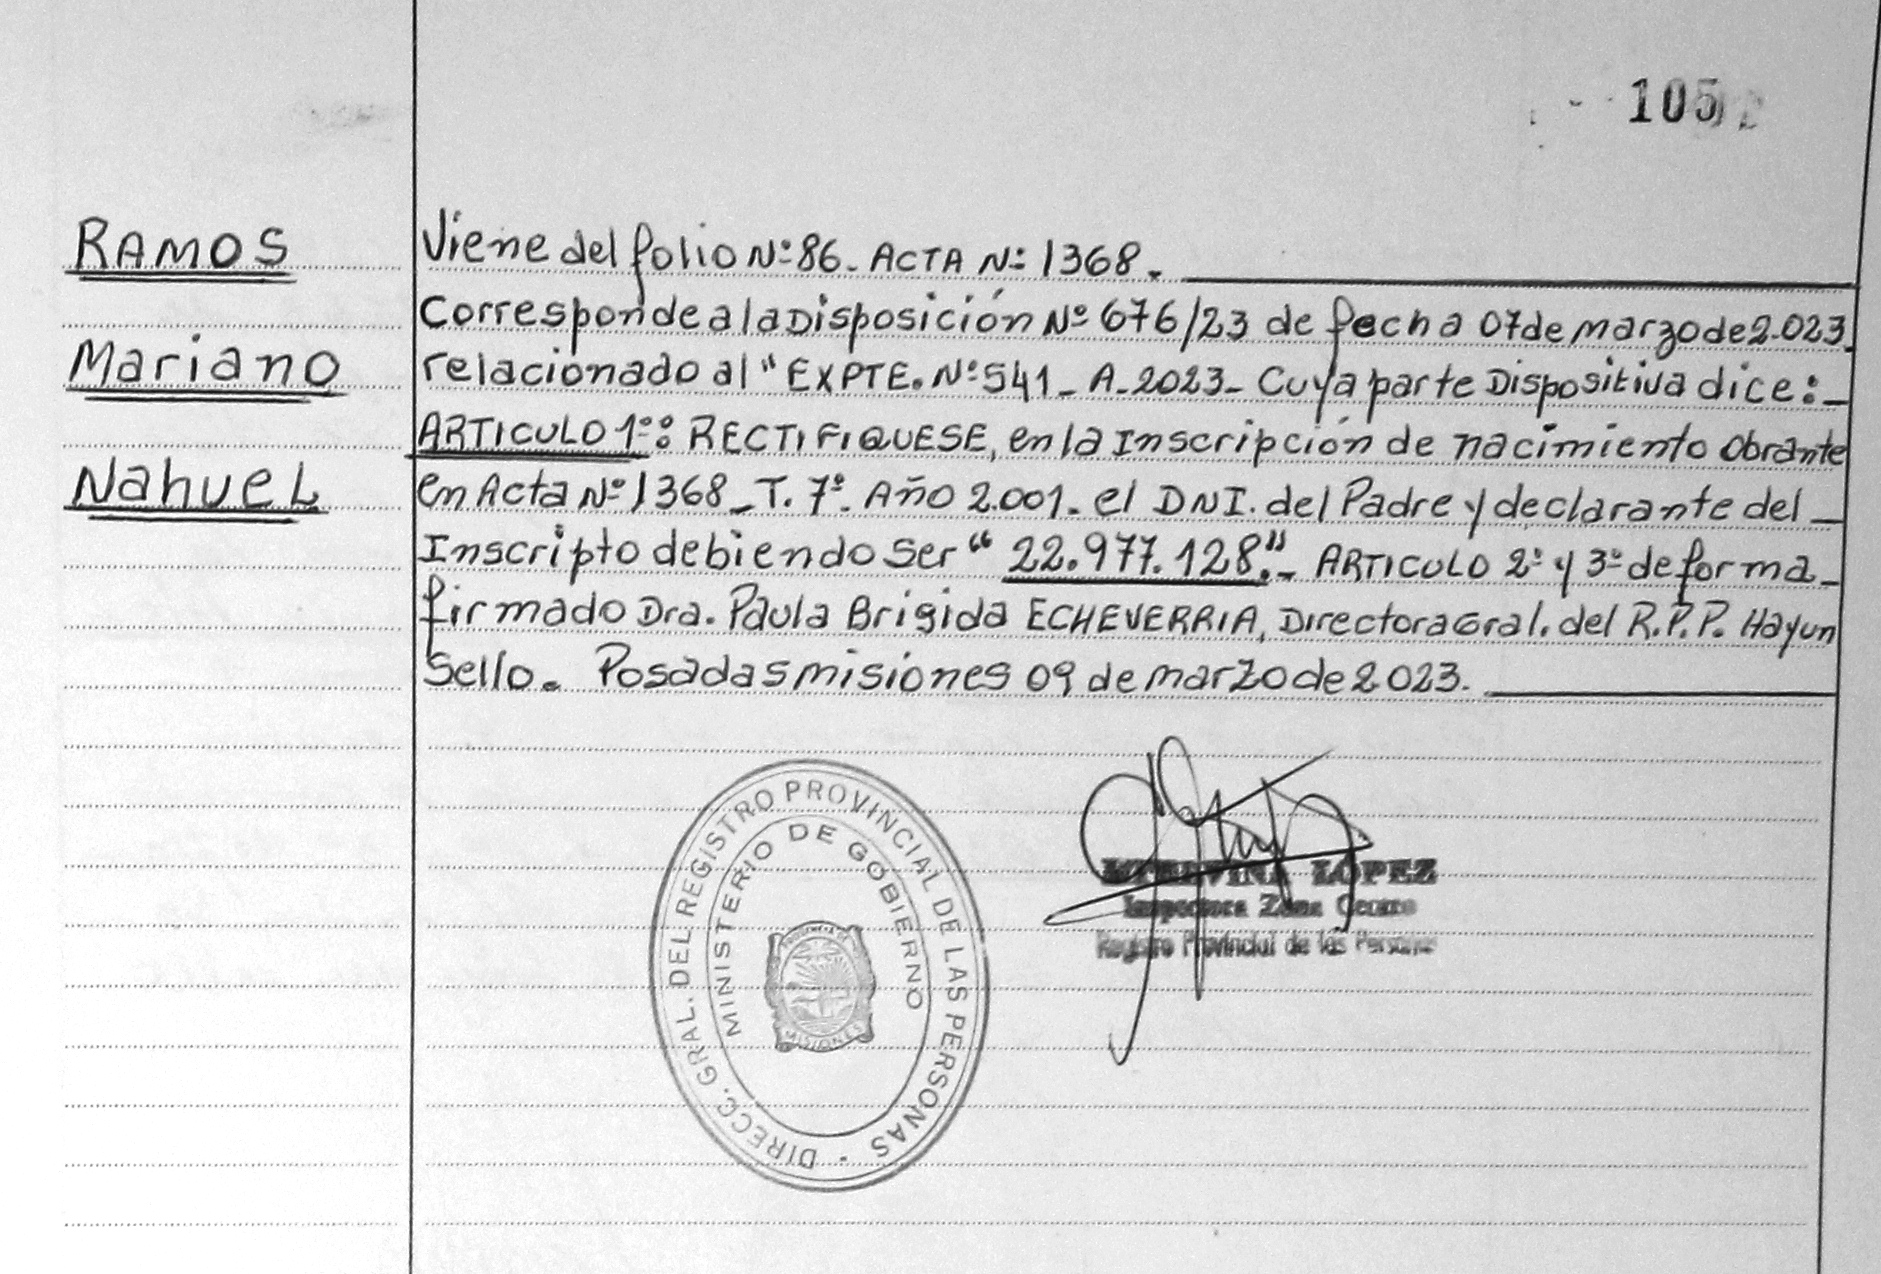 105
RAMOS
Mariano
Nahuel
Viene del folio Nº 86. ACTA Nº 1368.
Corresponde a la Disposición Nº 676/23 de fecha 07 de marzo de 2.023
relacionado al "EXPTE. Nº 541_ A_2023_ Cuya parte Dispositiva dice:_
ARTICULO 1º: RECTIFIQUESE, en la Inscripción de nacimiento Obrante
en Acta Nº 1368_T. 7º. Año 2.001. el DNI. del Padre y declarante del_
Inscripto debiendo ser "22.977.128."_ ARTICULO 2º y 3º de forma_
firmado Dra. Paula Brigida ECHEVERRIA, Directora Gral. del R.P.P. Hay un
Sello. Posadas misiones 09 de marzo de 2023.
DIRECC. GRAL. DEL REGISTRO PROVINCIAL DE LAS PERSONAS
MINISTERIO DE GOBIERNO
PROVINCIA DE
MISIONES
LOPEZ
Inspectora Zona Centro
Registro Provincial de las Personas